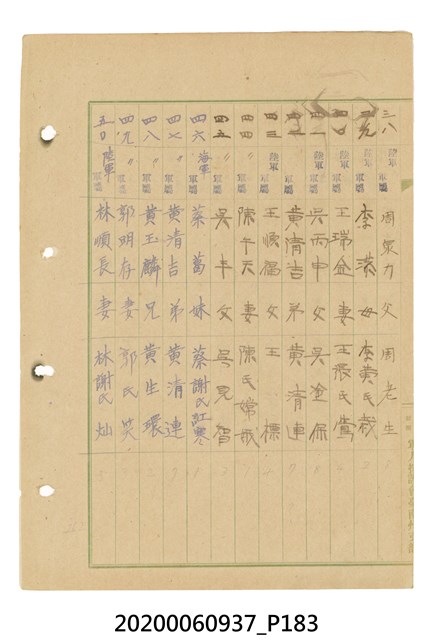 三八 陸軍 軍屬 周眾力 父 周老生
三九 陸軍 軍屬 李洪 母 李黃氏栽
四〇 陸軍 軍屬 王瑞金 妻 王張氏鴦
四一 陸軍 軍屬 吳丙申 父 吳金保
四二 〃 軍屬 黃清吉 弟 黃清連
四三 陸軍 軍屬 王順福 父 王標
四四 〃 軍屬 陳午天 妻 陳氏嫦娥
四五 〃 軍屬 吳丰 父
四六 海軍 軍屬 蔡萬 妹 蔡謝氏紅寒
四七 〃 軍屬 黃清吉 弟 黃清連
四八 〃 軍屬 黃玉麟 兄 黃生環
四九 〃 軍屬 郭明存 妻 郭氏笑
五〇 陸軍 軍屬 林順長 妻 林謝氏灿
20200060937_P183